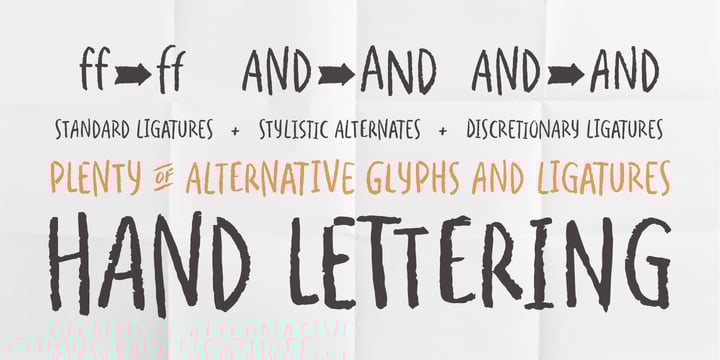 ff ff AND AND AND AND
STANDARD LIGATURES + STYLISTIC ALTERNATES + DISCRETIONARY LIGATURES
PLENTY OF ALTERNATIVE GLYPHS AND LIGATURES
HAND LETTERING